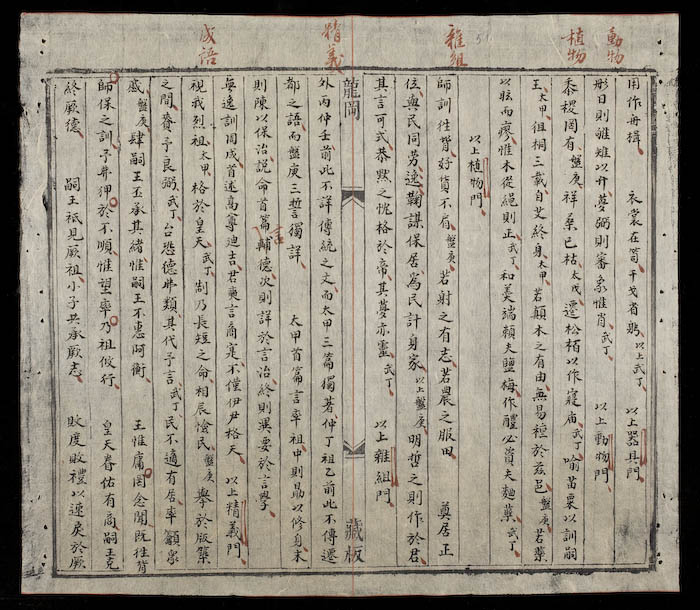 動物
植物
雜組
精義
成語
用作舟楫　衣裳在笥干戈省躬以上武丁　以上器具門
形日則雉雊以升夢弼則審象惟肖武丁　以上動物門
黍稷罔有盤庚祥桑已枯太戊遷松栢以作寢廟武丁喻苗粟以訓嗣
王太甲徂桐三載自艾終身太甲若顛木之有由無易種於茲邑盤庚若藥
以眩而瘳惟木從繩則正武丁和羮端賴夫鹽梅作醴必資夫麯蘖武丁
以上植物門
師訓往背好貨不肩盤庚若射之有志若農之服田　奠居正
位與民同勞逸鞠謀保居爲民計身家以上盤庚明哲之則作於君
其言可式恭默之忱格於帝其夢亦靈武丁　以上雜組門
龍岡　藏版
外丙仲壬前此不詳傳統之文而太甲三篇獨著仲丁祖乙前此不傳遷
都之語而盤庚三誓獨詳　太甲首篇言率祖中則勗以修身末
則陳以保治說命首篇輔德次則詳於言治終則湨要於言學
言
無逸訓周成首述高尊迪吉君奭言商寔不僅伊尹格天　以上精義門
視我烈祖太甲格於皇天武丁制乃長短之命相辰憸民盤庚舉於版築
之間賚予良弼武丁台恐德弗類其代予言武丁民不適有居率籲衆
慼盤庚肆嗣王丕承其緒惟嗣王不惠阿衡　王惟庸罔念聞既往背
師保之訓予弗狎於不順惟望率乃祖攸行　皇天眷佑有商嗣王克
終厥德　嗣王祇見厥祖小子丕承厥志　敗度敗禮以速戾於厥